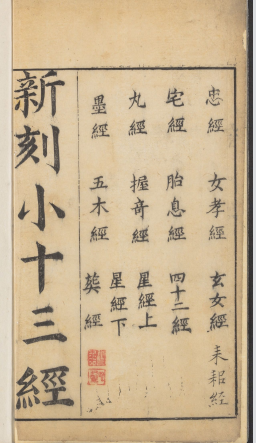 忠經 女孝經 玄女經 耒耜經
宅經 胎息經 四十二經
丸經 握奇經 星經上 星經下
墨經 五木經 葬經
新刻小十三經